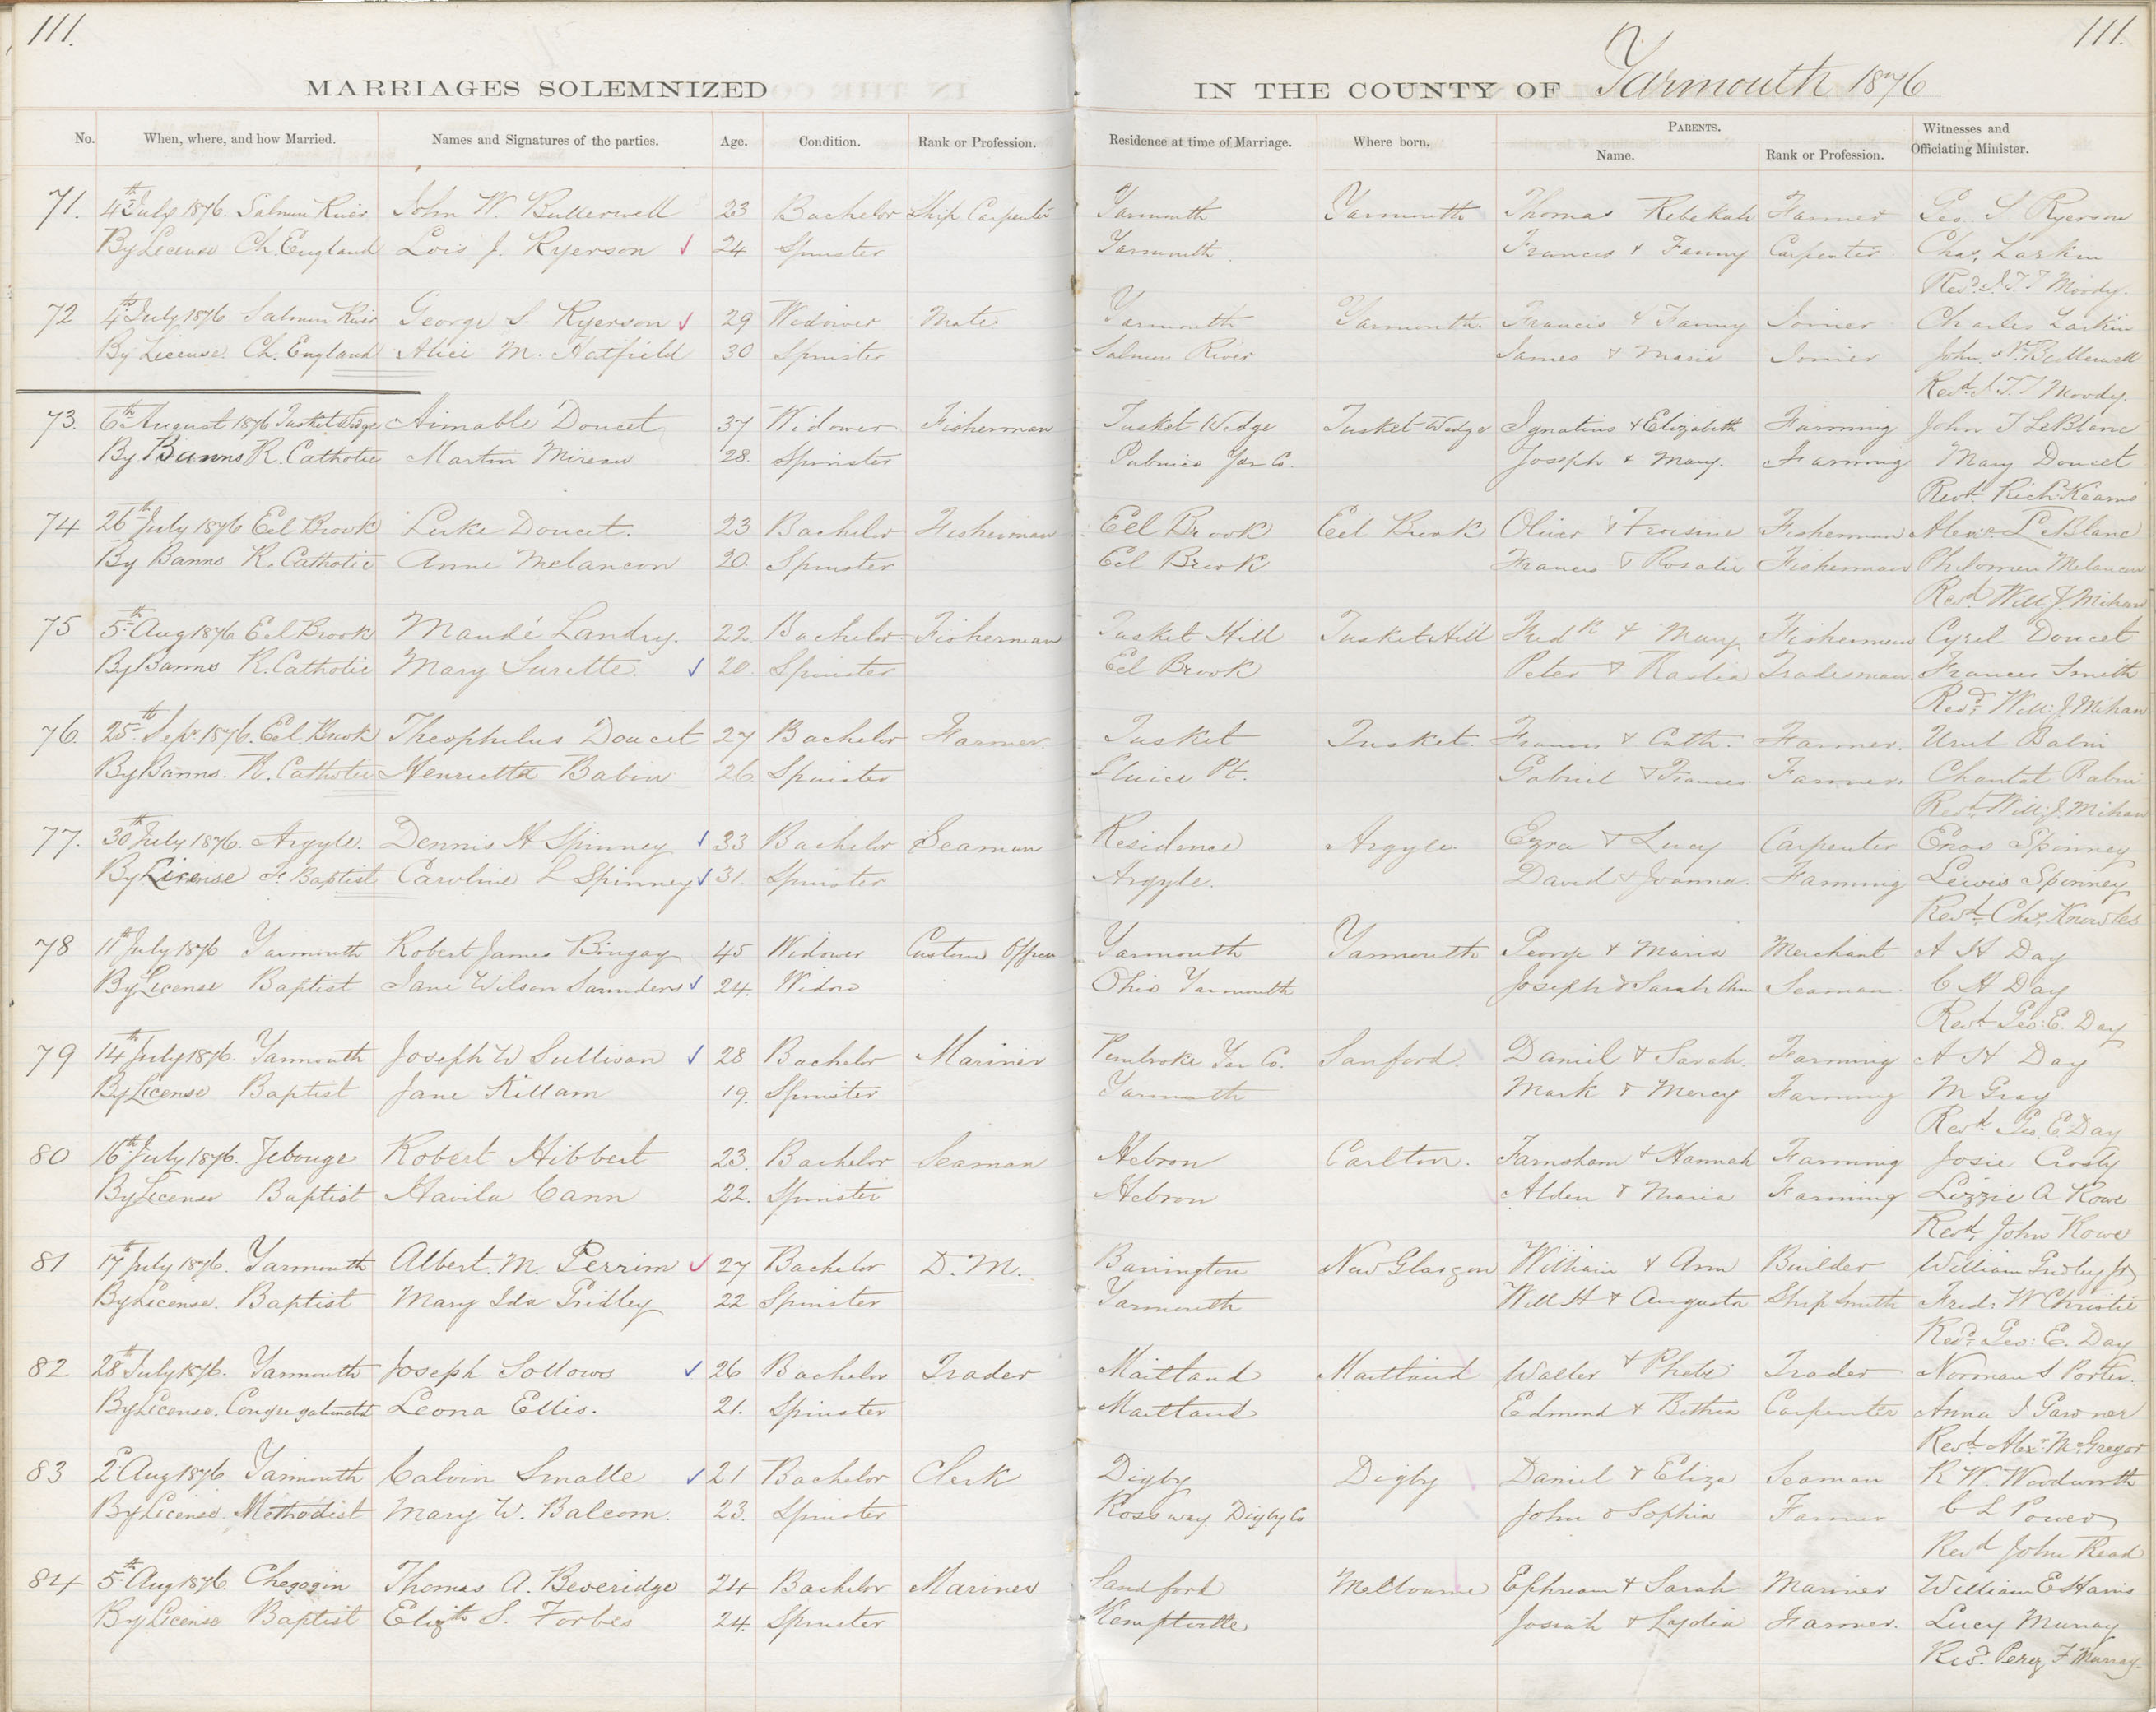 111.
111.
MARRIAGES SOLEMNIZED IN THE COUNTY OF Yarmouth 1876
No. When, where, and how Married. Names and Signatures of the parties. Age. Condition. Rank or Profession. Residence at time of Marriage. Where born. PARENTS. Name. Rank or Profession. Witnesses and Officiating Minister.
71. 4th July 1876. Salmon River John W. Bullerwell 23 Bachelor Ship Carpenter Yarmouth Yarmouth Thomas Rebekah Farmer Geo. S Ryerson
By License Ch. England Lois J. Ryerson 24 Spinster Yarmouth Frances & Fanny Carpenter Chas. Larkin
Revd. J. T. T Moody.
72 4th July 1876 Salmon River George S. Ryerson 29 Widower Mate Yarmouth Yarmouth. Francis & Fanny Joiner Charles Larkin
By License. Ch. England Alice M. Hatfield 30 Spinster Salmon River James & Maria Joiner John W. Bullerwell
Revd. J. T. T Moody.
73. 6th August 1876 Tusket Wedge Aimable Doucet 37 Widower Fisherman Tusket Wedge Tusket Wedge Ignatius & Elizabeth Farming John T LeBlanc
By Banns R. Catholic Martin Mireau 28. Spinster Pubnico Yar Co. Joseph & Mary. Farming Mary Doucet
Revd. Richd. Kearns
74 26th July 1876 Eel Brook Luke Doucet. 23 Bachelor Fisherman Eel Brook Eel Brook Oliver & Frosine Fisherman Alexr. LeBlanc
By Banns R. Catholic Anne Melancon 20. Spinster Eel Brook Frances & Rosalie Fisherman Philomen Melancon
Revd. Will J. Mihan
75 5th Aug 1876 Eel Brook Mandé Landry. 22. Bachelor Fisherman Tusket Hill Tusket Hill Fredk & Mary Fisherman Cyril Doucet
By Banns R. Catholic Mary Surette. 20. Spinster Eel Brook Peter & Raslia Tradesman. Frances Smith
Revd. Will. J Mihan
76. 25th Sept 1876. Eel Brook Theophilus Doucet 27 Bachelor Farmer. Tusket Tusket. Frances & Cath. Farmer. Babin
By Banns. R. Catholic Henrietta Babin 26. Spinster Sluice Pt. Gabriel & Frances Farmer. Chantal Babin
Revd. Will. J. Mihan
77. 30th July 1876. Argyle. Dennis H Spinney 33 Bachelor Seaman Residence Argyle Ezra & Lucy Carpenter Enos Spinney
By License F. Baptist Caroline L Spinney 31. Spinster Argyle. David & Joanna. Farming Lewis Spinney
Revd. Chas. Knowles
78 11th July 1876 Yarmouth Robert James Bingay 45 Widower Customs Officer Yarmouth Yarmouth George & Maria Merchant A H Day
By License Baptist Jane Wilson Saunders 24. Widow Ohio Yarmouth Joseph & Sarah Ann Seaman C H Day
Revd. Geo. E. Day
79 14th July 1876. Yarmouth Joseph W Sullivan 28 Bachelor Mariner Pembroke Yar Co. Sanford. Daniel & Sarah. Farming A H Day
By License Baptist Jane Killam 19. Spinster Yarmouth Mark & Mercy Farming M Gray
Revd. Geo. E. Day
80 16th July 1876. Jebouge Robert Hibbert 23. Bachelor Seaman Hebron Carlton. Farnsham & Hannah Farming Josie Crosby
By License Baptist Havila Cann 22. Spinster Hebron Alden & Maria Farming Lizzie A Rowe
Revd. John Rowe
81 17th July 1876. Yarmouth Albert. M. Perrim 27 Bachelor D. M. Barrington New Glasgow William & Ann Builder William Gridley Jr
By License. Baptist Mary Ida Gridley 22 Spinster Yarmouth Will H & Augusta Ship Smith Fred: W Christie
Revd. Geo: E. Day
82 28th July 1876. Yarmouth Joseph Sollows 26 Bachelor Trader Maitland Maitland Walter & Phebe Trader Norman S Porter.
By License. Congregationalist Leona Ellis. 21. Spinster Maitland Edmond & Bethia Carpenter Anna I Gardner
Revd. Alexr. McGregor
83 2d Aug 1876 Yarmouth Calvin Smalle 21 Bachelor Clerk Digby Digby Daniel & Eliza Seaman R W. Woodworth
By License. Methodist Mary W. Balcom. 23. Spinster Rossway Digby Co John & Sophia Farmer C L Power
Revd John Read
84 5th Aug 1876. Chegogin Thomas A. Beveridge 24 Bachelor Mariner Sandford Melbourne Ephraim & Sarah Mariner William E Harris
By License Baptist Elizth S. Forbes 24. Spinster Kemptville Josiah & Lydia Farmer. Lucy Murray
Revd. Perez F Murray